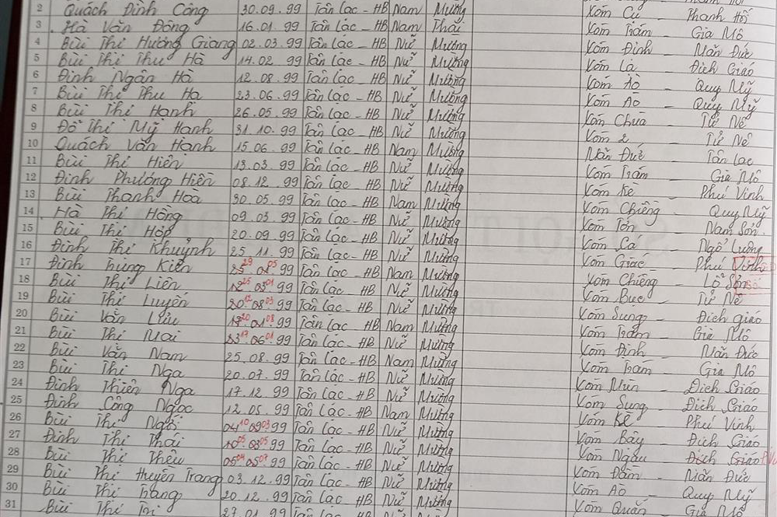 2 Quách Đình Công 30.09.99 Tân Lạc - HB Nam Mường Xóm Cú - Thanh Hối
3 Hà Văn Đông 16.01.99 Tân Lạc - HB Nam Thái Xóm Trám - Gia Mô
4 Bùi Thị Hương Giang 02.03.99 Tân Lạc - HB Nữ Mường Xóm Định - Mãn Đức
5 Bùi Thị Thu Hà 14.02.99 Tân Lạc - HB Nữ Mường Xóm Lạ - Địch Giáo
6 Đinh Ngân Hà 12.08.99 Tân Lạc - HB Nữ Mường Xóm Ào - Quy Mỹ
7 Bùi Thị Thu Hạ 23.06.99 Tân Lạc - HB Nữ Mường Xóm Ào - Quy Mỹ
8 Bùi Thị Hạnh 26.05.99 Tân Lạc - HB Nữ Mường Xóm Chùa - Tử Nê
9 Đỗ Thị Mỹ Hạnh 31.10.99 Tân Lạc - HB Nữ Mường Xóm 2 - Tử Nê
10 Quách Văn Hạnh 15.06.99 Tân Lạc - HB Nam Mường Mãn Đức - Tân Lạc
11 Bùi Thị Hiền 13.03.99 Tân Lạc - HB Nữ Mường Xóm Trám - Gia Mô
12 Đinh Phương Hiền 08.12.99 Tân Lạc - HB Nữ Mường Xóm Kè - Phú Vinh
13 Bùi Thanh Hòa 30.05.99 Tân Lạc - HB Nam Mường Xóm Chiềng - Quy Mỹ
14 Hà Thị Hồng 09.03.99 Tân Lạc - HB Nữ Mường Xóm Tớn - Nam Sơn
15 Bùi Thị Hợp 20.09.99 Tân Lạc - HB Nữ Mường Xóm Ca - Ngổ Luông
16 Đinh Thị Khuỳnh 25.11.99 Tân Lạc - HB Nữ Mường Xóm Giác - Phú Vinh
17 Đinh Trung Kiên 99 Tân Lạc - HB Nam Mường Xóm Chiềng -
18 Bùi Thị Liên 99 Tân Lạc - HB Nữ Mường Xóm Bục - Tử Nê
19 Bùi Thị Luyến 99 Tân Lạc - HB Nữ Mường Xóm Sung - Địch Giáo
20 Bùi Văn Lưu 99 Tân Lạc - HB Nam Mường Xóm Trám - Gia Mô
21 Bùi Thị Mai 99 Tân Lạc - HB Nữ Mường Xóm Định - Mãn Đức
22 Bùi Văn Nam 25.08.99 Tân Lạc - HB Nam Mường Xóm Trám - Gia Mô
23 Bùi Thị Nga 20.07.99 Tân Lạc - HB Nữ Mường Xóm - Địch Giáo
24 Đinh Thiên Nga 17.12.99 Tân Lạc - HB Nữ Mường Xóm Sung - Địch Giáo
25 Đinh Công Ngọc 12.05.99 Tân Lạc - HB Nam Mường Xóm Kè - Phú Vinh
26 Bùi Thị 99 Tân Lạc - HB Nữ Mường Xóm Bây - Địch Giáo
27 Đinh Thị Thái 99 Tân Lạc - HB Nữ Mường Xóm - Địch Giáo
28 Bùi Thị Thêu 99 Tân Lạc - HB Nữ Mường Xóm Đầm - Mãn Đức
29 Bùi Thị Huyền Trang 03.12.99 Tân Lạc - HB Nữ Mường Xóm Ào - Quy Mỹ
30 Bùi Thị Trang 20.12.99 Tân Lạc - HB Nữ Mường Xóm Quắn - Gia Mô
31 Bùi Thị 27.01.99 Tân Lạc - HB Nữ Mường